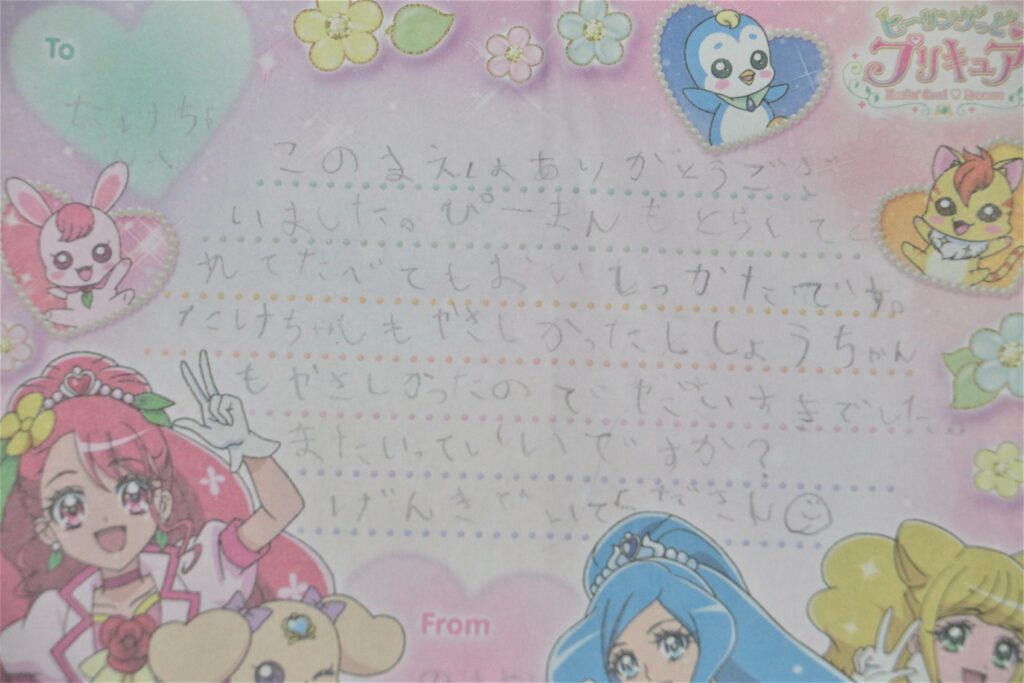 To
ヒーリングっど
プリキュア
たけちゃ
このまえわありがとうござ
いました。ぴーまんもとらしてく
れてたべてもおいしかったです。
たけちゃんもやさしかったししょうちゃん
もやさしかったのでだいすきでした。
またいっていいですか?
げんき
From